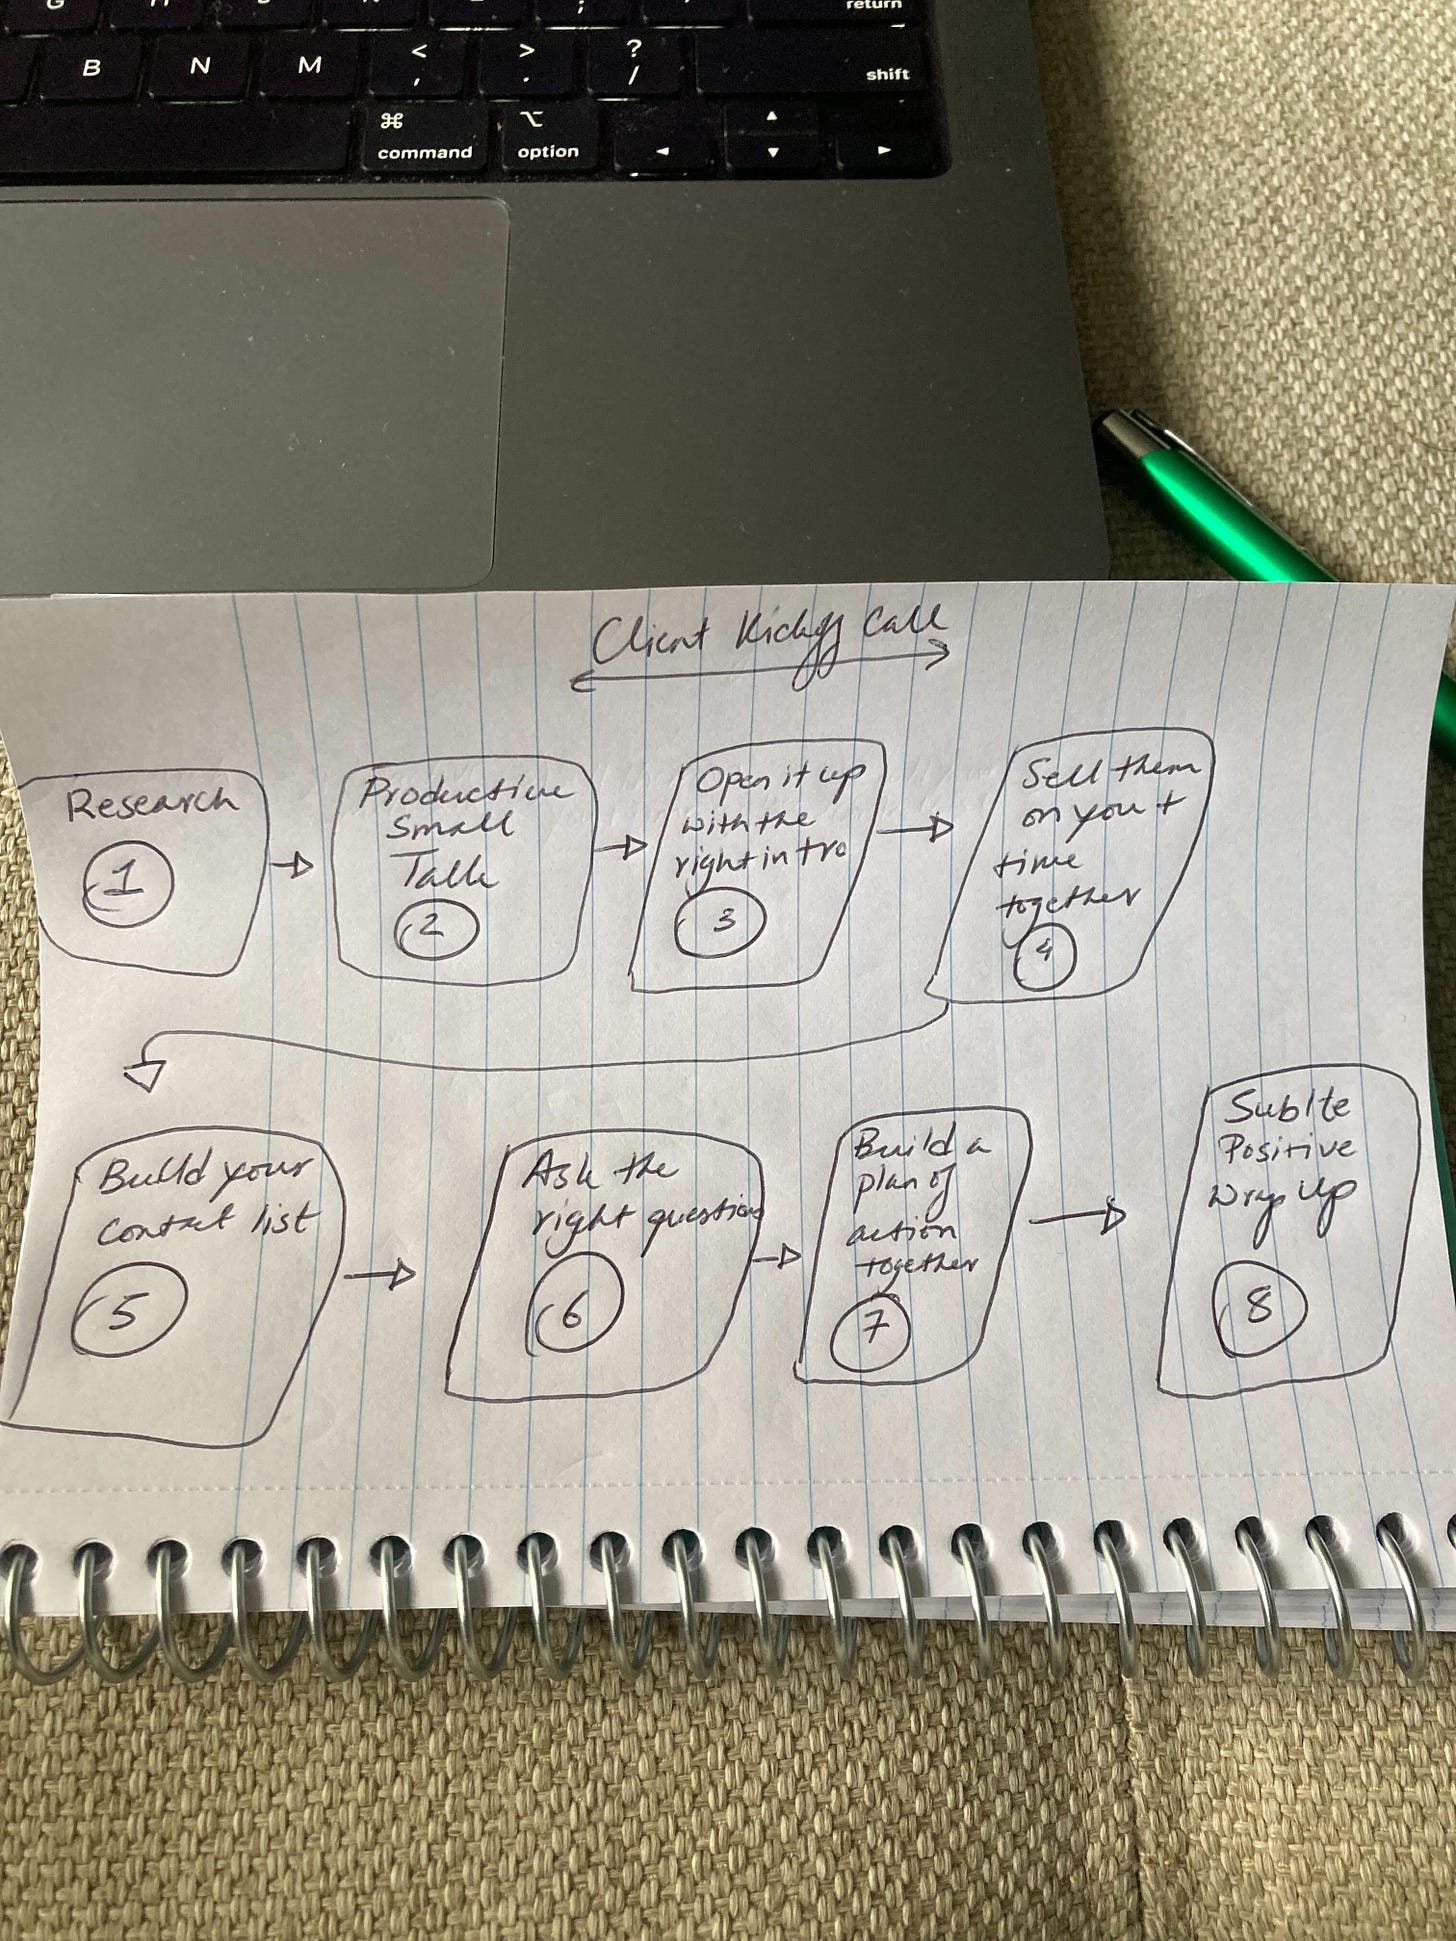 return
B N M < , > . ? / shift
⌘ command ⌥ option ◄ ▲ ▼ ►
Client Kickoff Call
Research
1
Productive
Small
Talk
2
Open it up
with the
right intro
3
Sell them
on you +
time
together
4
Build your
contact list
5
Ask the
right questions
6
Build a
plan of
action
together
7
Sublte
Positive
Wrap Up
8